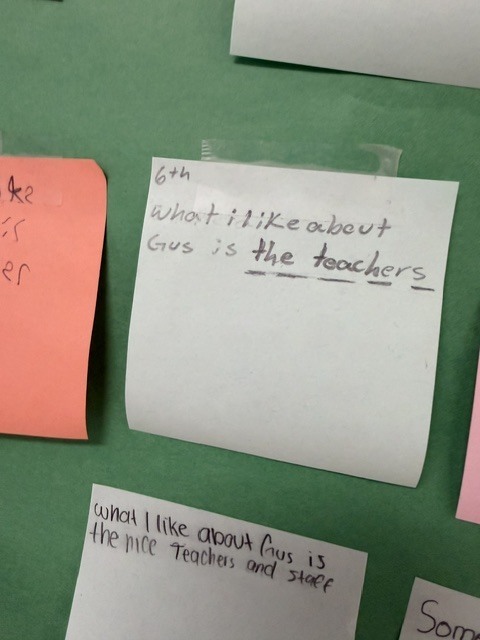 6th
What i like about
Gus is the teachers
ke
is
er
what I like about Gus is
the nice Teachers and staff
Som